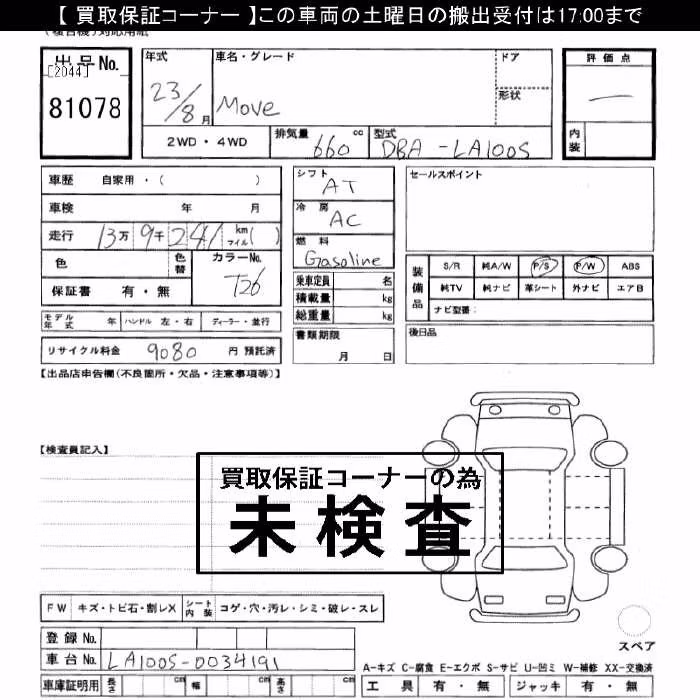 【 買取保証コーナー 】この車両の土曜日の搬出受付は17:00まで
出品No.
[2044]
81078
年式
23/8月
車名・グレード
Move
ドア
形状
評価点
—
内装
2WD・4WD
排気量 660 cc
型式 DBA-LA100S
車歴 自家用・( )
車検 年 月
走行 13万9千241 km マイル( )
色
色替
カラーNo.
T26
保証書 有・無
モデル年式 年 ハンドル 左・右 ディーラー・並行
リサイクル料金 9080 円 預託済
シフト
AT
冷房
AC
燃料
Gasoline
乗車定員 名
積載量 kg
総重量 kg
書類期限
月 日
セールスポイント
装備品
S/R 純A/W P/S P/W ABS
純TV 純ナビ 革シート 外ナビ エアB
ナビ型番:
後日品
【出品店申告欄(不良箇所・欠品・注意事項等)】
【検査員記入】
買取保証コーナーの為
未検査
FW キズ・トビ石・割レX シート内装 コゲ・穴・汚レ・シミ・破レ・スレ
登録 No.
車台 No. LA100S-0034191
車庫証明用 長さ cm 幅 cm 高さ cm
スペア
A-キズ C-腐食 E-エクボ S-サビ U-凹ミ W-補修 XX-交換済
工具 有・無 ジャッキ 有・無